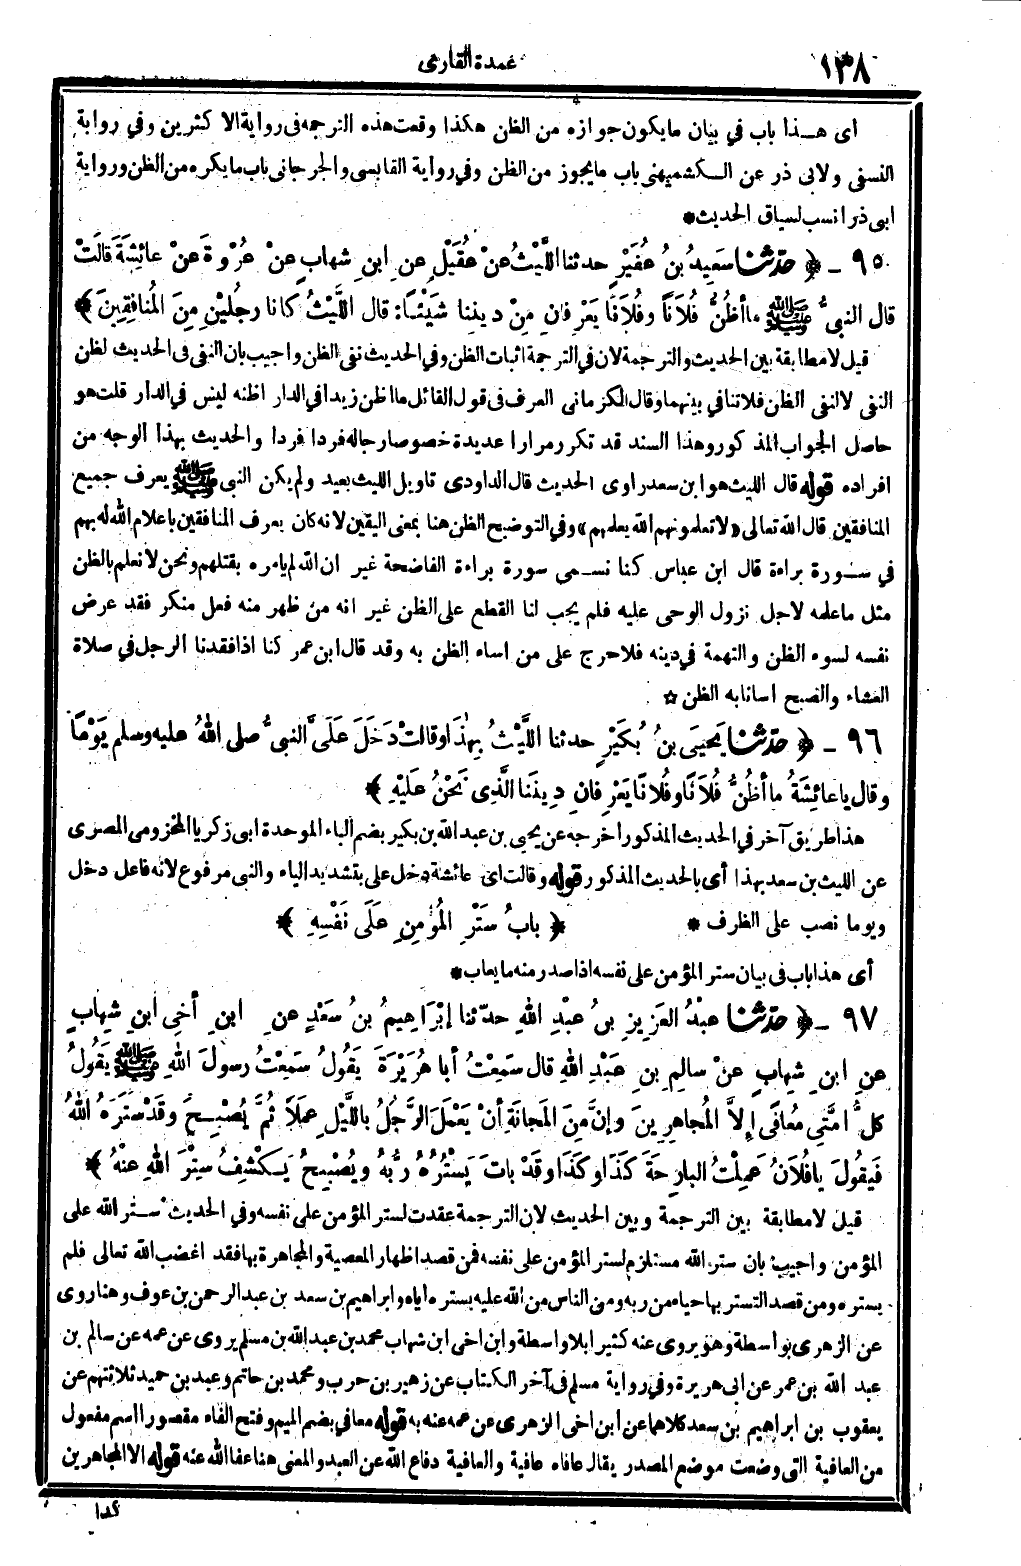 ١٣٨
عمدة القارى
اى هـــذا باب في بيان ما يكون جوازه من الظن هكذا وقعت هذه الترجمه فى رواية الاكثرين وفي رواية
النسفى ولابى ذر عن الـكشميهنى باب مايجوز من الظن وفي رواية القابسى والجرجانى باب ما يكره من الظن ورواية
ابى ذر انسب لسياق الحديث*
٩٥ - ﴿ حَدَّثَنَا سَعِيدُ بنُ عُفَيْرٍ حدثنا اللَّيْثُ عنْ عُقَيْلٍ عنِ ابنِ شِهابٍ عنْ عُرْوَةَ عنْ عائِشَةَ قالَتْ
قال النبىُّ ﷺ ما أظُنُّ فُلَانًا وفُلَانًا يَعْرِفانِ مِنْ دِينِنا شَيْئًا: قال اللَّيْثُ كانا رجُلَيْنِ مِنَ المُنافِقِينَ ﴾
قيل لا مطابقة بين الحديث والترجمة لان في الترجمة اثبات الظن وفي الحديث نفى الظن واجيب بان النفى فى الحديث لظن
النفى لالنفى الظن فلا تنافي بينهما وقال الكرمانى العرف فى قول القائل ما اظن زيدا في الدار اظنه ليس في الدار قلت هو
حاصل الجواب المذكور وهذا السند قد تكرر مرارا عديدة خصوصا رجاله فردا فردا والحديث بهذا الوجه من
افراده قوله قال الليث هو ابن سعد راوى الحديث قال الداودى تاويل الليث بعيد ولم يكن النبى ﷺ يعرف جميع
المنافقين قال الله تعالى «لا تعلمونهم الله يعلمهم» وفي التوضيح الظن هنا بمعنى اليقين لانه كان يعرف المنافقين باعلام الله له بهم
في سـورة براءة قال ابن عباس كنا نسـمى سورة براءة الفاضحة غير ان الله لم يامره بقتلهم ونحن لا نعلم بالظن
مثل ما علمه لاجل نزول الوحى عليه فلم يجب لنا القطع على الظن غير انه من ظهر منه فعل منكر فقد عرض
نفسه لسوء الظن والتهمة في دينه فلا حرج على من اساء الظن به وقد قال ابن عمر كنا اذا فقدنا الرجل في صلاة
العشاء والصبح اسانا به الظن ☆
٩٦ - ﴿ حَدَّثَنَا يَحيَى بنُ بُكَيْرٍ حدثنا اللَّيْثُ بِهٰذَا وقالَتْ دَخَلَ عَلَيَّ النبىُّ صلى اللهُ عليه وسلم يَوْمًا
وقال يا عائِشَةُ ما أظُنُّ فُلَانًا وفُلَانًا يَعْرِفانِ دِينَنَا الَّذِى نَحْنُ عَلَيْهِ ﴾
هذا طريق آخر في الحديث المذكور اخرجه عن يحيى بن عبد الله بن بكير بضم الباء الموحدة ابى زكريا المخزومى المصرى
عن الليث بن سعد بهذا أى بالحديث المذكور قوله وقالت اى عائشة دخل على بتشديد الياء والنبى مرفوع لانه فاعل دخل
ويوما نصب على الظرف *
﴿ بابُ سَتْرِ المُؤْمِنِ عَلَى نَفْسِهِ ﴾
أى هذا باب فى بيان ستر المؤمن على نفسه اذا صدر منه ما يعاب*
٩٧ - ﴿ حَدَّثَنَا عبْدُ العَزِيزِ بنُ عبْدِ اللهِ حدّثنا إبْرَاهِيمُ بنُ سَعْدٍ عنِ ابنِ أخِى ابنِ شِهابٍ
عنِ ابنِ شِهابٍ عنْ سالِمِ بنِ عبْدِ اللهِ قال سَمِعْتُ أبا هُرَيْرَةَ يَقُولُ سَمِعْتُ رسولَ اللهِ ﷺ يَقُولُ
كلُّ أمَّتِى مُعافًى إلاَّ المُجاهِرِينَ وإنَّ مِنَ المَجانَةِ أنْ يَعْمَلَ الرَّجُلُ باللَّيْلِ عمَلاً ثُمَّ يُصْبِـحَ وقَدْ سَتَرَهُ اللهُ
فَيقُولَ يا فُلَانُ عَمِلْتُ البارِحَةَ كَذَا وكَذَا وقَدْ باتَ يَسْتُرُهُ رَبُّهُ ويُصْبِحُ يَـكْشِفُ سِتْرَ اللهِ عنْهُ ﴾
قيل لا مطابقة بين الترجمة وبين الحديث لان الترجمة عقدت لستر المؤمن على نفسه وفي الحديث ستر الله على
المؤمن واجيب بان ستر الله مستلزم لستر المؤمن على نفسه فمن قصد اظهار المعصية والمجاهرة بها فقد اغضب الله تعالى فلم
يستره ومن قصد التستر بها حياء من ربه ومن الناس من الله عليه بستره اياه وابراهيم بن سعد بن عبد الرحمن بن عوف وهنا روى
عن الزهرى بواسطة وهو يروى عنه كثيرا بلا واسطة وابن اخى ابن شهاب محمد بن عبد الله بن مسلم يروى عن عمه عن سالم بن
عبد الله بن عمر عن ابى هريرة وفي رواية مسلم فى آخر الكتاب عن زهير بن حرب ومحمد بن حاتم وعبد بن حميد ثلاثتهم عن
يعقوب بن ابراهيم بن سعد كلاهما عن ابن اخى الزهرى عن عمه عنه به قوله معافي بضم الميم وفتح الفاء مقصورا اسم مفعول
من العافية التى وضعت موضع المصدر يقال عافاه عافية والعافية دفاع الله عن العبد والمعنى هنا عفا الله عنه قوله الا المجاهرين
كذا